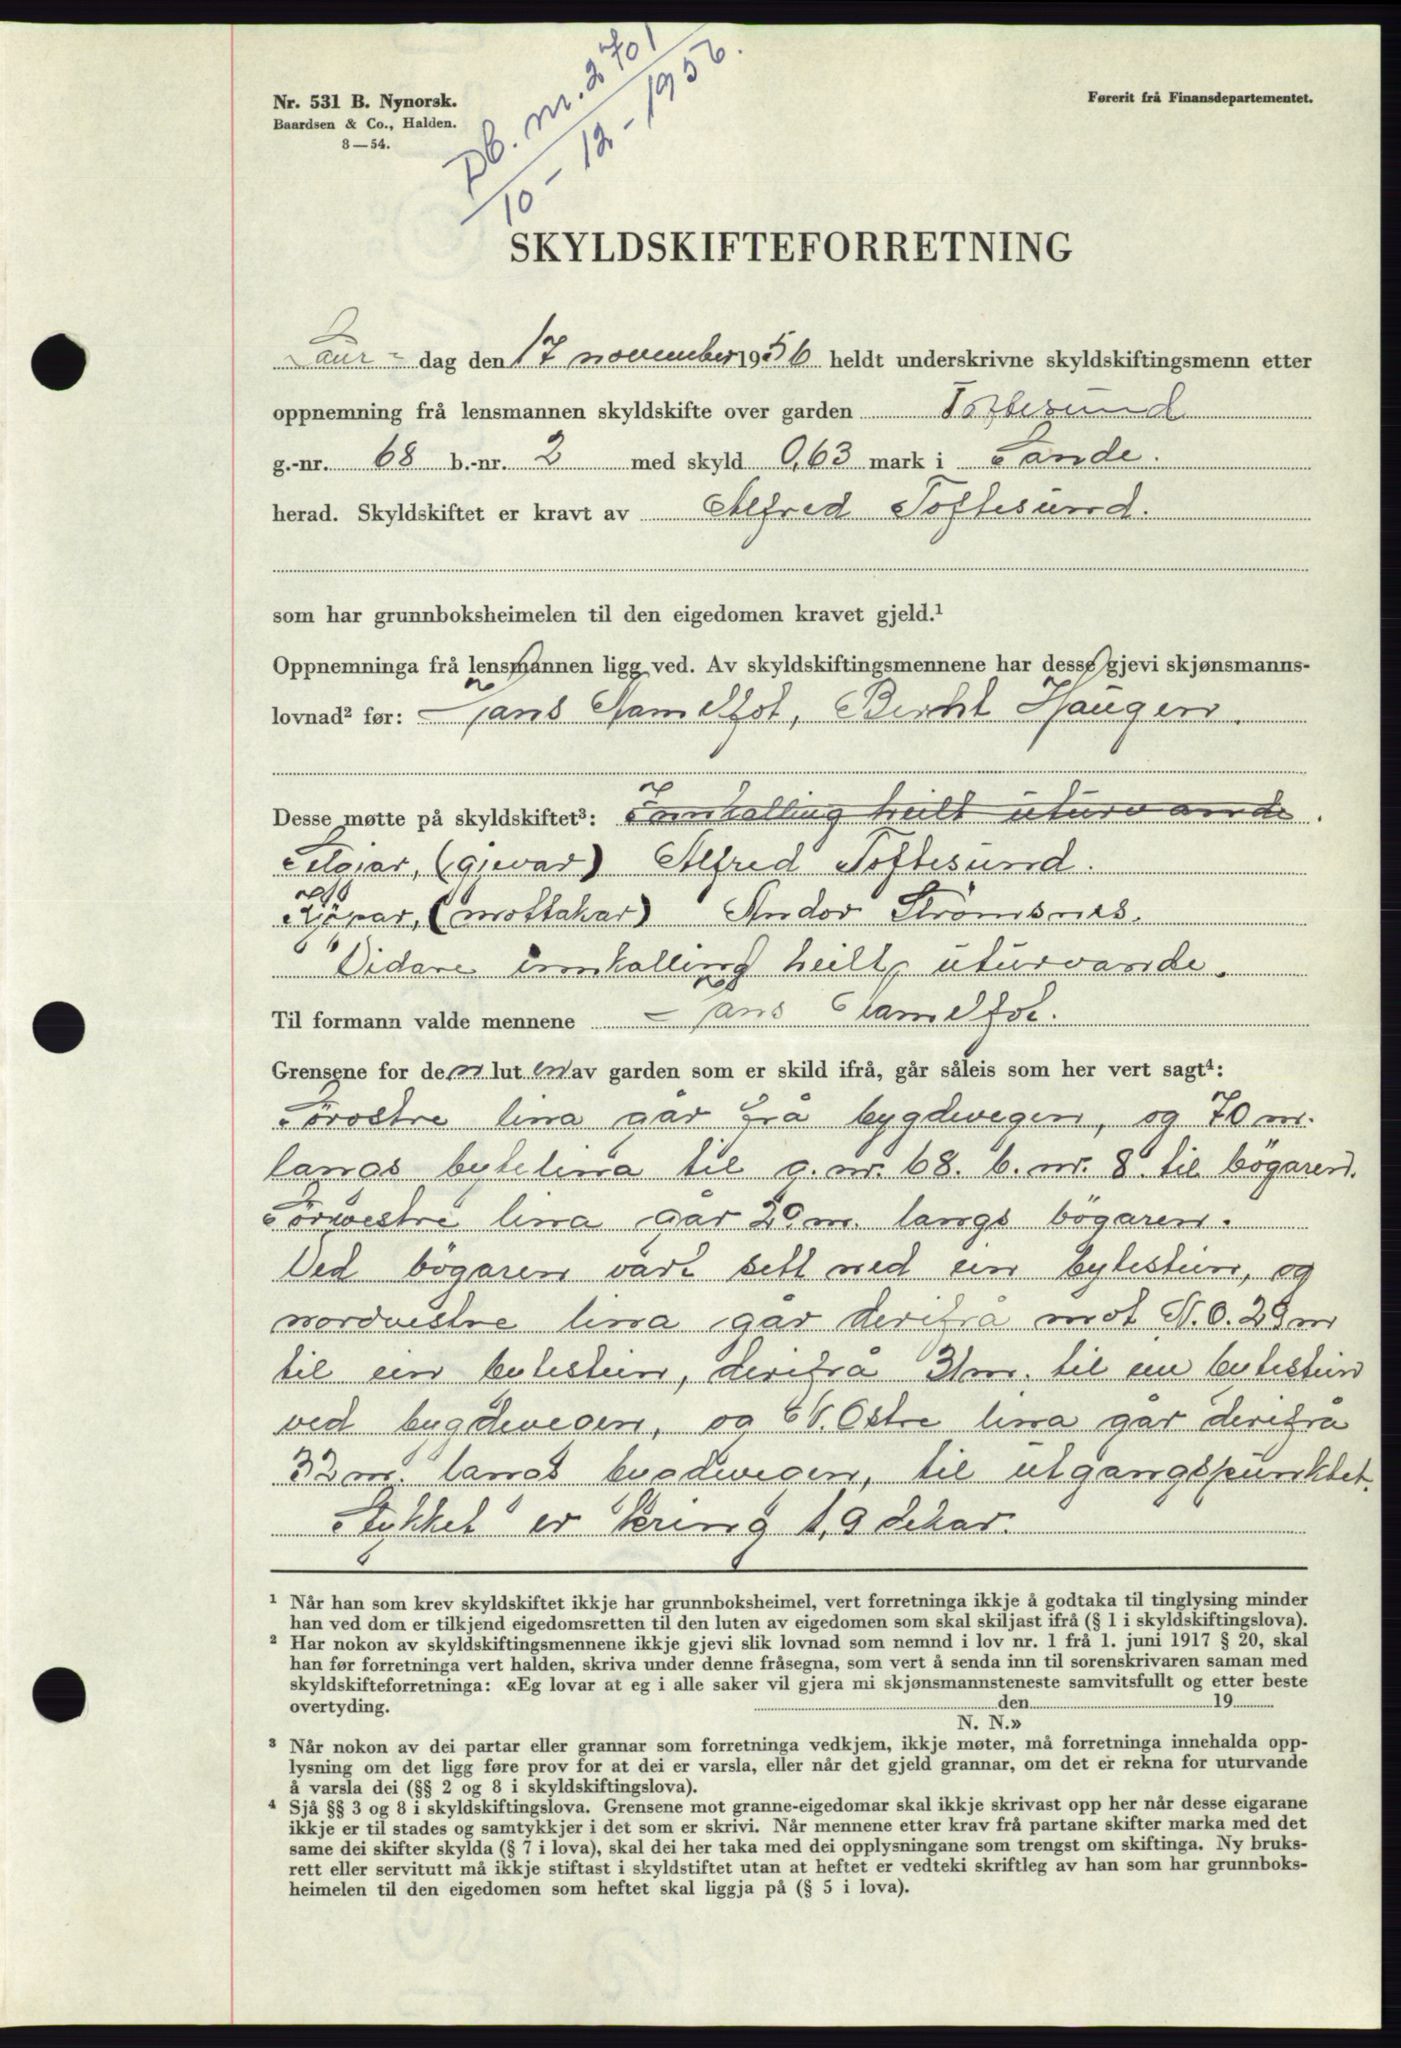 Db. nr. 2701
10-12-1956.
Nr. 531 B. Nynorsk.
Baardsen & Co., Halden.
8—54.
Førerit frå Finansdepartementet.
SKYLDSKIFTEFORRETNING
Laur-dag den 17 november 1956 heldt underskrivne skyldskiftingsmenn etter
oppnemning frå lensmannen skyldskifte over garden Toftesund
g.-nr. 68 b.-nr. 2 med skyld 0,63 mark i Sande.
herad. Skyldskiftet er kravt av Alfred Toftesund.
som har grunnboksheimelen til den eigedomen kravet gjeld.¹
Oppnemninga frå lensmannen ligg ved. Av skyldskiftingsmennene har desse gjevi skjønsmanns-
lovnad² før: Hans Hamelfot, Bernt Haugen.
Desse møtte på skyldskiftet³: Innkalling heilt uturvande.
Seljar, (gjevar) Alfred Toftesund.
Kjöpar, (mottakar) Andor Strömsnes.
Vidare innkalling heilt uturvande.
Til formann valde mennene Hans Hamelfot.
Grensene for den luten av garden som er skild ifrå, går såleis som her vert sagt⁴:
Sørostre lina går frå bygdevegen, og 70 m.
langs bytelina til g.nr. 68. b.nr. 8. til bögaren.
Sörvestre lina går 20 m. langs bögaren.
Ved bögaren vart sett ned ein bytestein, og
nordvestre lina går derifrå mot N.O. 29 m
til ein bytestein, derifrå 31 m. til ein bytestein
ved bygdevegen, og N. Ostre lina går derifrå
32 m. langs bygdevegen, til utgangspunktet.
Stykket er kring 1,9 dekar.
¹ Når han som krev skyldskiftet ikkje har grunnboksheimel, vert forretninga ikkje å godtaka til tinglysing minder
han ved dom er tilkjend eigedomsretten til den luten av eigedomen som skal skiljast ifrå (§ 1 i skyldskiftingslova).
² Har nokon av skyldskiftingsmennene ikkje gjevi slik lovnad som nemnd i lov nr. 1 frå 1. juni 1917 § 20, skal
han før forretninga vert halden, skriva under denne fråsegna, som vert å senda inn til sorenskrivaren saman med
skyldskifteforretninga: «Eg lovar at eg i alle saker vil gjera mi skjønsmannsteneste samvitsfullt og etter beste
overtyding. den 19
N. N.»
³ Når nokon av dei partar eller grannar som forretninga vedkjem, ikkje møter, må forretninga innehalda opp-
lysning om det ligg føre prov for at dei er varsla, eller når det gjeld grannar, om det er rekna for uturvande
å varsla dei (§§ 2 og 8 i skyldskiftingslova).
⁴ Sjå §§ 3 og 8 i skyldskiftingslova. Grensene mot granne-eigedomar skal ikkje skrivast opp her når desse eigarane
ikkje er til stades og samtykkjer i det som er skrivi. Når mennene etter krav frå partane skifter marka med det
same dei skifter skylda (§ 7 i lova), skal dei her taka med dei opplysningane som trengst om skiftinga. Ny bruks-
rett eller servitutt må ikkje stiftast i skyldstiftet utan at heftet er vedteki skriftleg av han som har grunnboks-
heimelen til den eigedomen som heftet skal liggja på (§ 5 i lova).